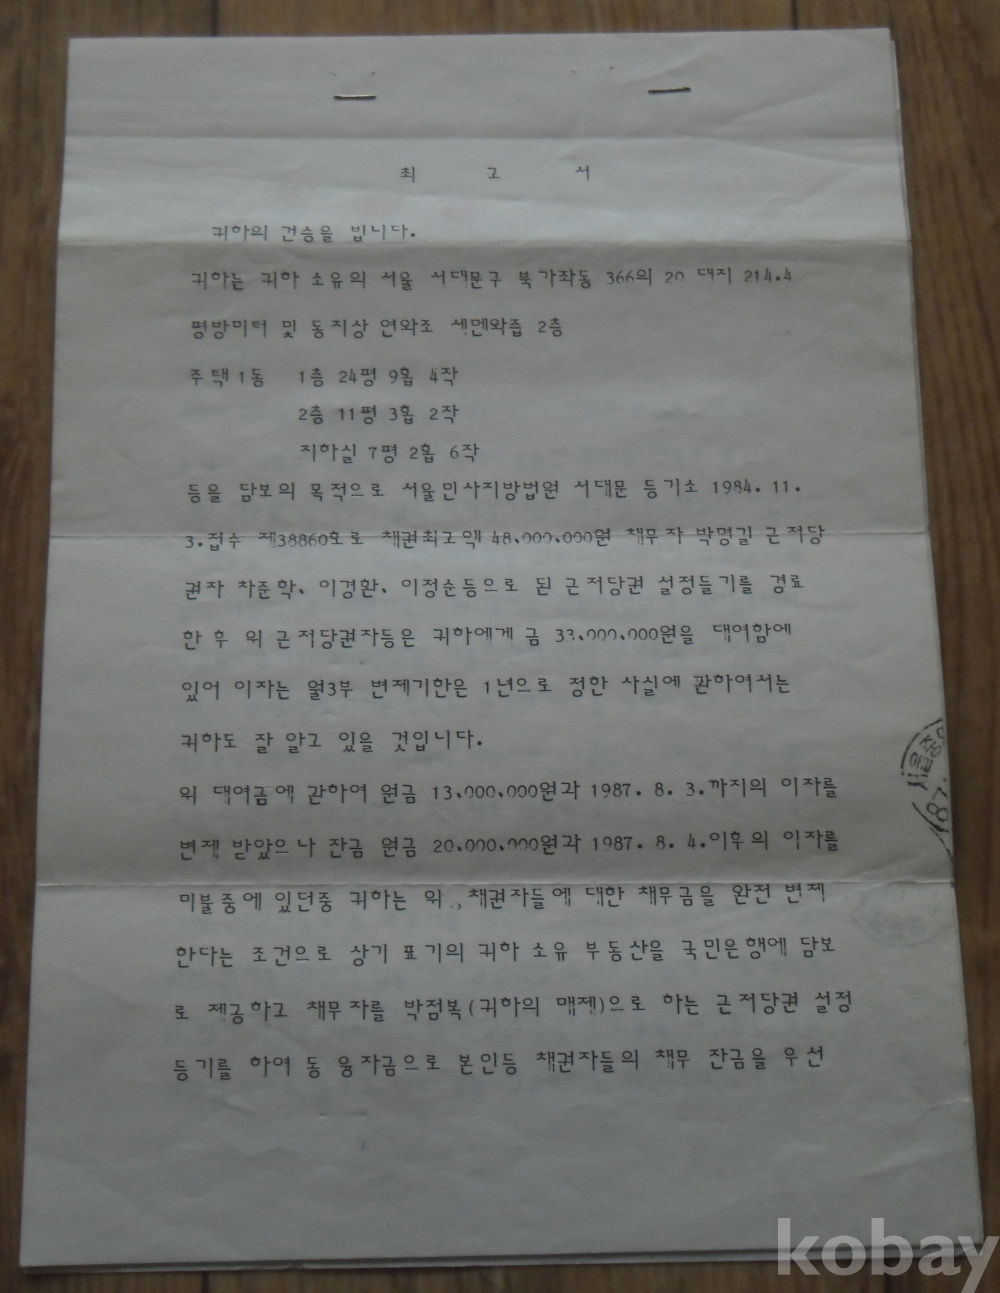 최 고 서
귀하의 건승을 빕니다.
귀하는 귀하 소유의 서울 서대문구 북가좌동 366의 20 대지 214.4
평방미터 및 동지상 연와조 세멘와즙 2층
주택1동 1층 24평 9홉 4작
2층 11평 3홉 2작
지하실 7평 2홉 6작
등을 담보의 목적으로 서울민사지방법원 서대문 등기소 1984. 11.
3.접수 제38860호로 채권최고액 48,000,000원 채무자 박명길 근저당
권자 차준학, 이경환, 이정순등으로 된 근저당권 설정등기를 경료
한 후 위 근저당권자등은 귀하에게 금 33,000,000원을 대여함에
있어 이자는 월3부 변제기한은 1년으로 정한 사실에 관하여서는
귀하도 잘 알고 있을 것입니다.
위 대여금에 관하여 원금 13,000,000원과 1987. 8. 3.까지의 이자를
변제 받았으나 잔금 원금 20,000,000원과 1987. 8. 4.이후의 이자를
미불중에 있던중 귀하는 위 채권자들에 대한 채무금을 완전 변제
한다는 조건으로 상기 표기의 귀하 소유 부동산을 국민은행에 담보
로 제공하고 채무자를 박점복(귀하의 매제)으로 하는 근저당권 설정
등기를 하여 동 융자금으로 본인등 채권자들의 채무 잔금을 우선
kobay